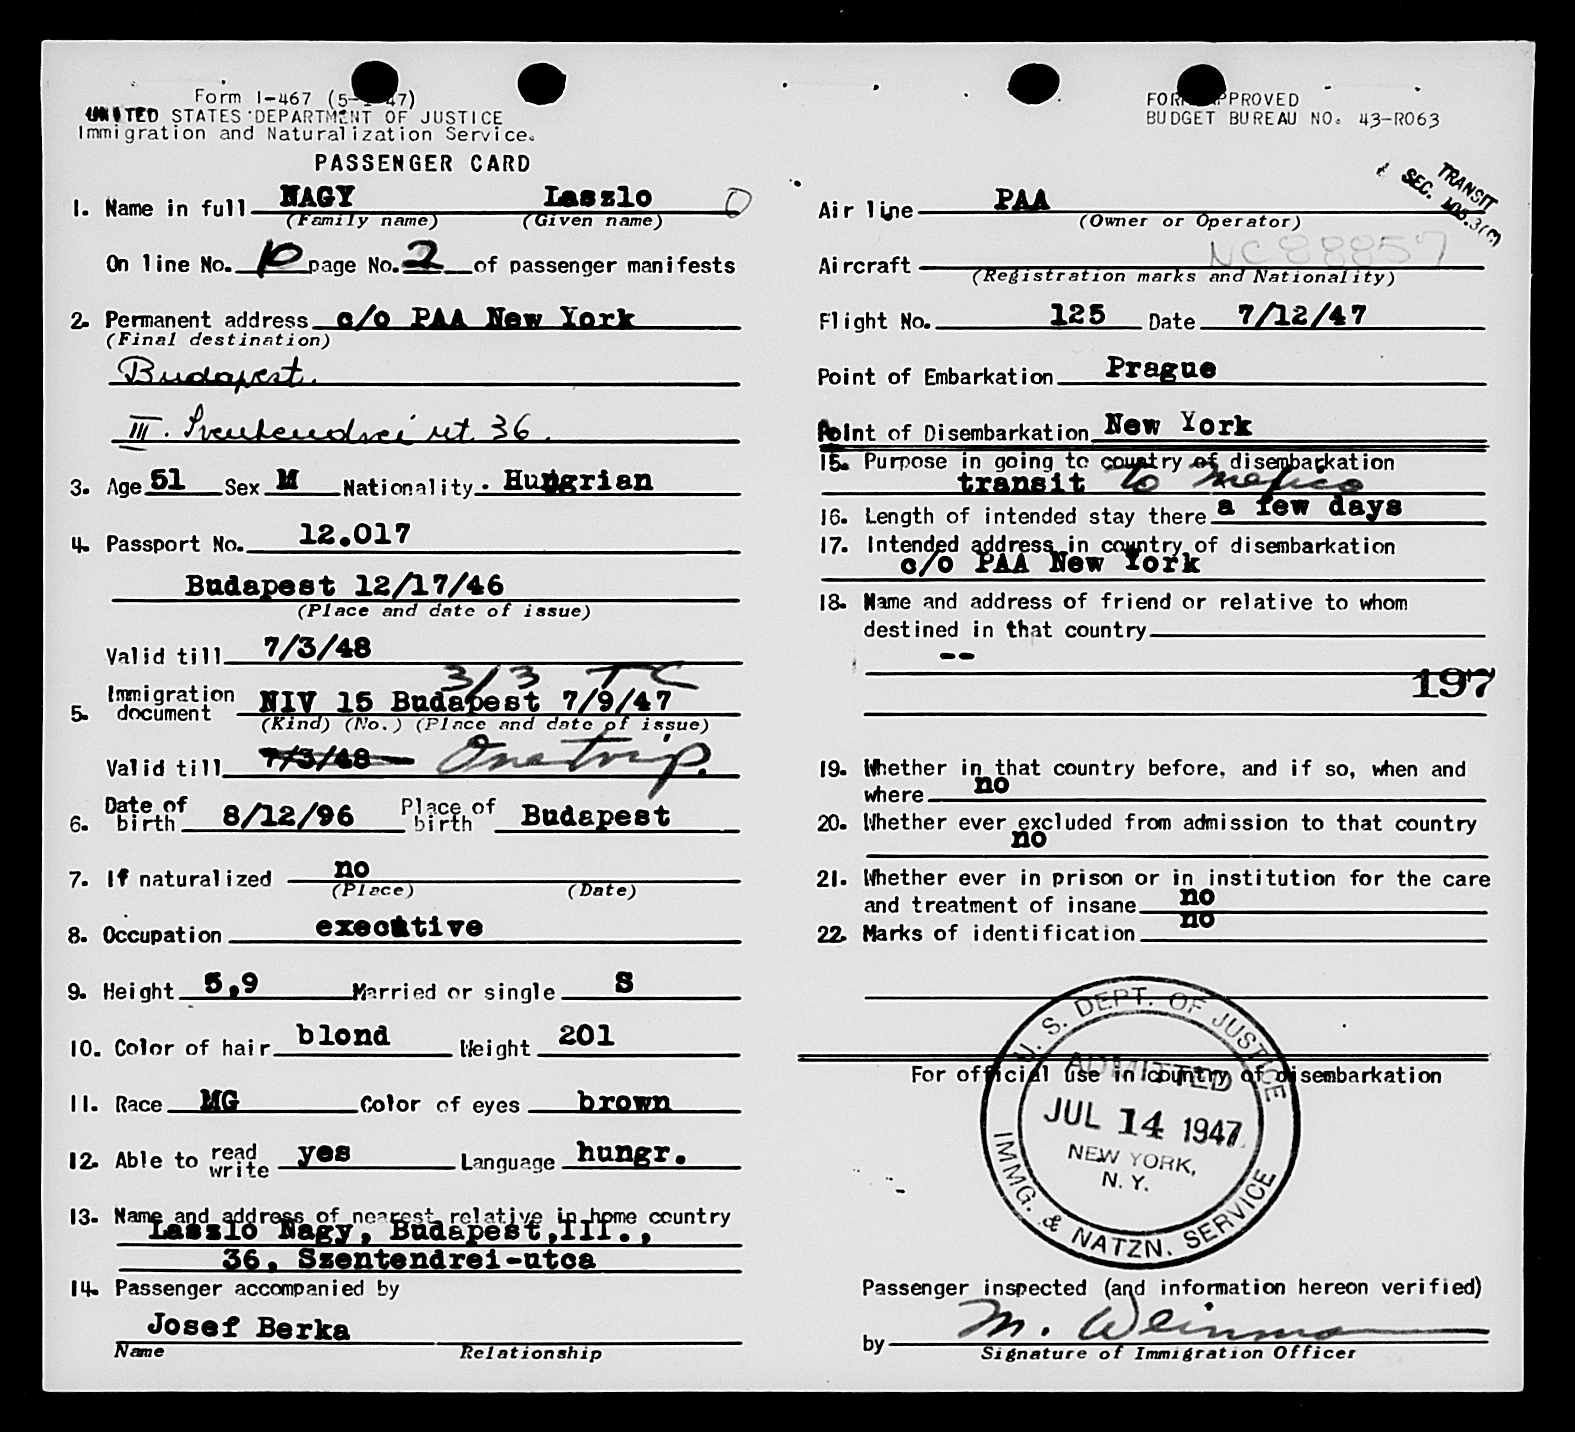 Form I-467 (5-1-47)
UNITED STATES DEPARTMENT OF JUSTICE
Immigration and Naturalization Service.
PASSENGER CARD
1. Name in full NAGY Laszlo
(Family name) (Given name)
On line No. 10 page No. 2 of passenger manifests
2. Permanent address c/o PAA New York
(Final destination)
Budapest.
III. Szentendrei ut. 36.
3. Age 51 Sex M Nationality. Hungrian
4. Passport No. 12.017
Budapest 12/17/46
(Place and date of issue)
Valid till 7/3/48
3/3 TC
5. Immigration document NIV 15 Budapest 7/9/47
(Kind) (No.) (Place and date of issue)
Valid till 7/3/48 One trip.
6. Date of birth 8/12/96 Place of birth Budapest
7. If naturalized no
(Place) (Date)
8. Occupation executive
9. Height 5,9 Married or single S
10. Color of hair blond Weight 201
11. Race MG Color of eyes brown
12. Able to read write yes Language hungr.
13. Name and address of nearest relative in home country
Laszlo Nagy, Budapest,III.,
36, Szentendrei-utca
14. Passenger accompanied by
Josef Berka
Name Relationship
FORM APPROVED
BUDGET BUREAU NO. 43-R063
TRANSIT
SEC.
Air line PAA
(Owner or Operator)
NC88857
Aircraft
(Registration marks and Nationality)
Flight No. 125 Date 7/12/47
Point of Embarkation Prague
Point of Disembarkation New York
15. Purpose in going to country of disembarkation
transit to Mexico
16. Length of intended stay there a few days
17. Intended address in country of disembarkation
c/o PAA New York
18. Name and address of friend or relative to whom
destined in that country
--
197
19. Whether in that country before, and if so, when and
where no
20. Whether ever excluded from admission to that country
no
21. Whether ever in prison or in institution for the care
and treatment of insane no
22. Marks of identification no
For official use in country of disembarkation
U. S. DEPT. OF JUSTICE
ADMITTED
JUL 14 1947
NEW YORK,
N. Y.
IMMG. & NATZN. SERVICE
Passenger inspected (and information hereon verified)
by M.
Signature of Immigration Officer